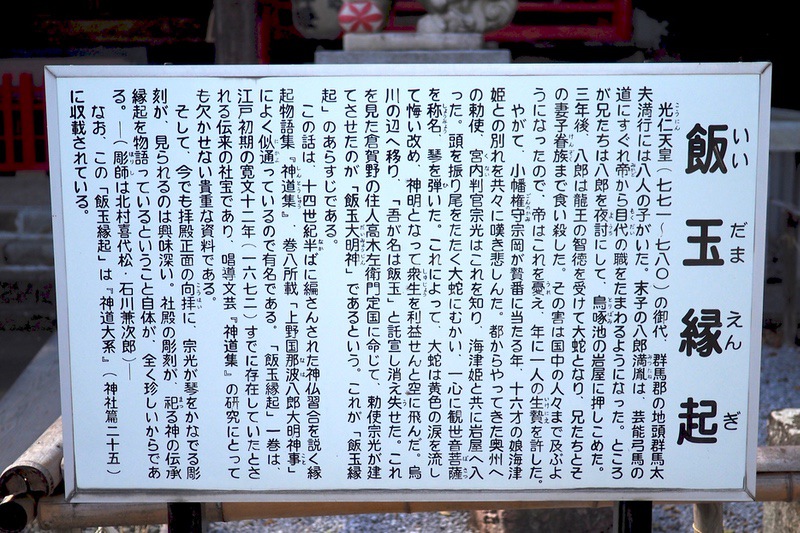 飯玉縁起
いいだまえんぎ
光仁天皇(七七一～七八〇)の御代、群馬郡の地頭群馬太
夫満行には八人の子がいた。末子の八郎満胤は、芸能弓馬の
道にすぐれ帝から目代の職をたまわるようになった。ところ
が兄たちは八郎を夜討にして、鳥啄池の岩屋に押しこめた。
三年後、八郎は龍王の智徳を受けて大蛇となり、兄たちとそ
の妻子眷族まで食い殺した。その害は国中の人々まで及ぶよ
うになったので、帝はこれを憂え、年に一人の生贄を許した。
やがて、小幡権守宗岡が贄番に当たる年、十六才の娘海津
姫との別れを共々に嘆き悲しんだ。都からやってきた奥州へ
の勅使、宮内判官宗光はこれを知り、海津姫と共に岩屋へ入
った。頭を振り尾をたたく大蛇にむかい、一心に観世音菩薩
を称名、琴を弾いた。これによって、大蛇は黄色の涙を流し
て悔い改め、神明となって衆生を利益せんと空に飛んだ。烏
川の辺へ移り、「吾が名は飯玉」と託宣し消え失せた。これ
を見た倉賀野の住人高木左衛門定国に命じて、勅使宗光が建
てさせたのが「飯玉大明神」であるという。これが「飯玉縁
起」のあらすじである。
この話は、十四世紀半ばに編さんされた神仏習合を説く縁
起物語集『神道集』、巻八所載「上野国那波八郎大明神事」
によく似通っているので有名である。「飯玉縁起」一巻は、
江戸初期の寛文十二年(一六七二)すでに存在していたとさ
れる伝来の社宝であり、唱導文芸『神道集』の研究にとって
も欠かせない貴重な資料である。
そして、今でも拝殿正面の向拝に、宗光が琴をかなでる彫
刻が、見られるのは興味深い。社殿の彫刻が、祀る神の伝承
縁起を物語っているということ自体が、全く珍しいからであ
る。―(彫師は北村喜代松・石川兼次郎)―
なお、この「飯玉縁起」は『神道大系』(神社篇二十五)
に収載されている。